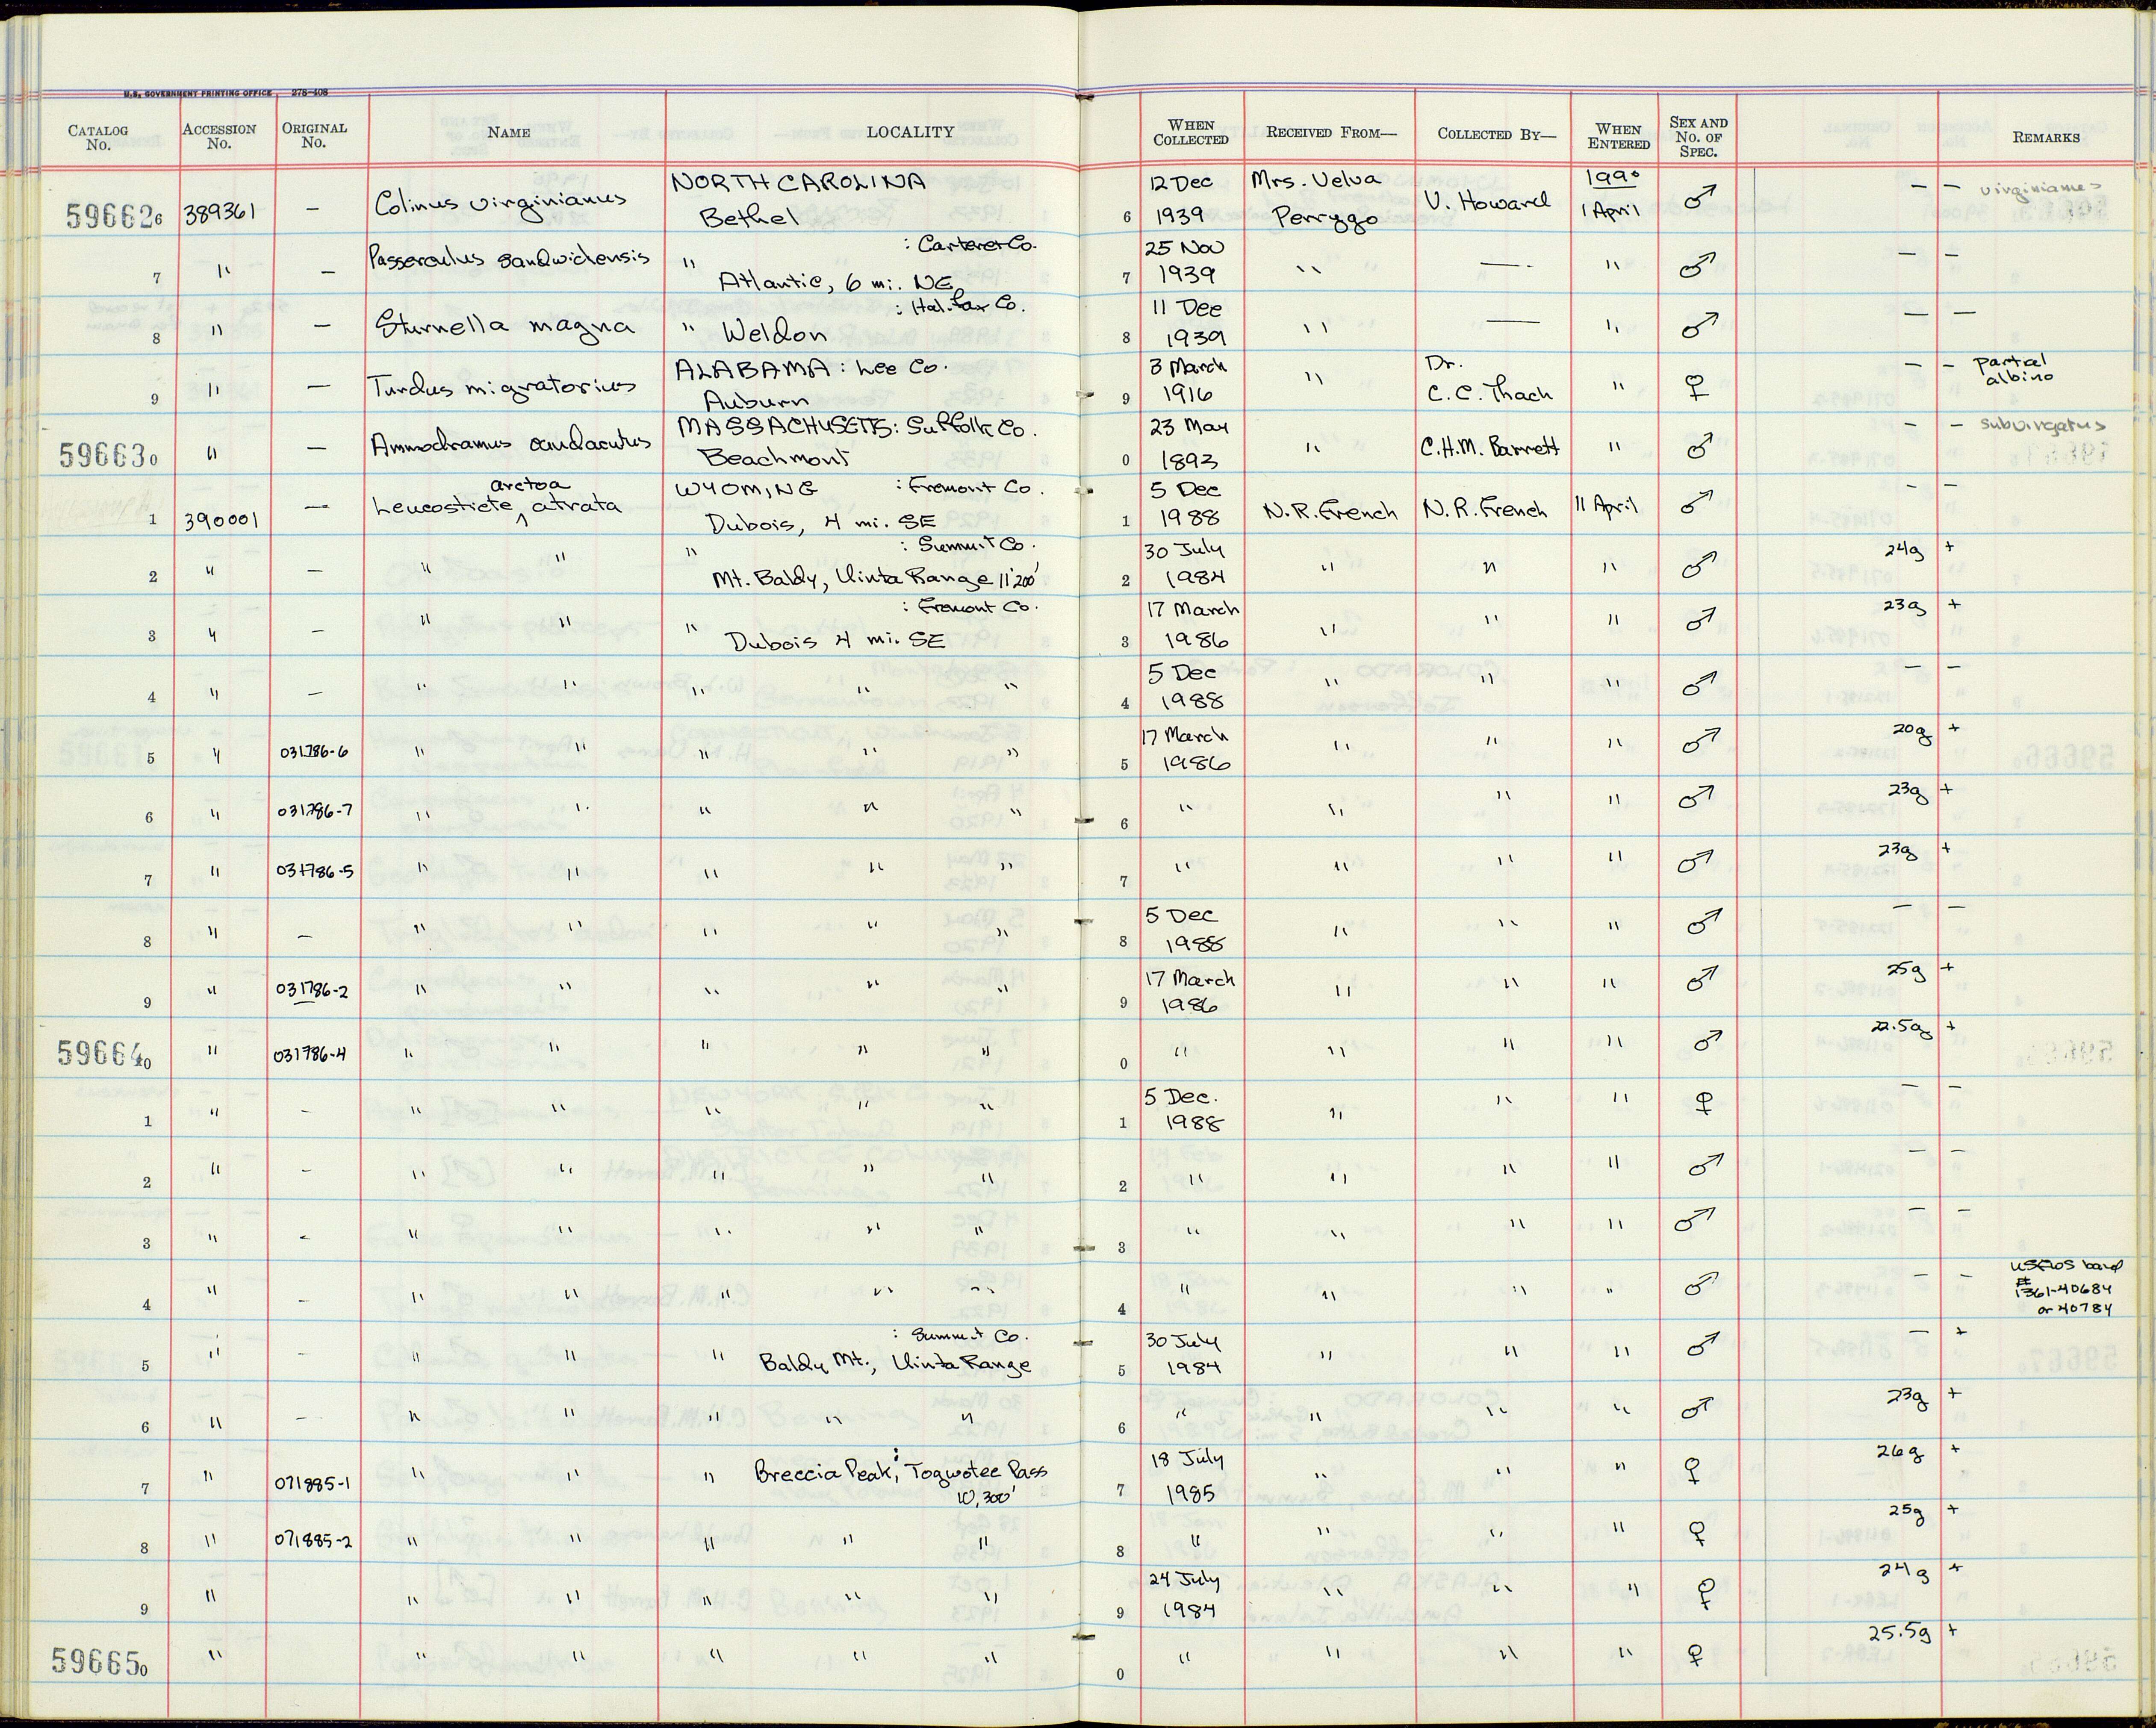 U.S. GOVERNMENT PRINTING OFFICE 278-408
CATALOG No. ACCESSION No. ORIGINAL No. NAME LOCALITY WHEN COLLECTED RECEIVED FROM— COLLECTED BY— WHEN ENTERED SEX AND No. OF SPEC. REMARKS
596626 389361 — Colinus virginianus NORTH CAROLINA Bethel 6 12 Dec 1939 Mrs. Velva Perrygo V. Howard 1990 1 April ♂ — — virginianus
7 " — Passerculus sandwichensis " : Carteret Co. Atlantic, 6 mi. NE 7 25 Nov 1939 " — " ♂ — —
8 " — Sturnella magna " : Halifax Co. Weldon 8 11 Dec 1939 " — " ♂ — —
9 " — Turdus migratorius ALABAMA : Lee Co. Auburn 9 3 March 1916 " Dr. C.C. Thach " ♀ — — partial albino
596630 " — Ammodramus caudacutus MASSACHUSETTS: Suffolk Co. Beachmont 0 23 May 1893 " C.H.M. Barrett " ♂ — — subvirgatus
1 390001 — Leucosticte arctoa atrata WYOMING : Fremont Co. Dubois, 4 mi. SE 1 5 Dec 1988 N.R. French N.R. French 11 April ♂ — —
2 " — " " " : Summit Co. Mt. Baldy, Uinta Range 11'200' 2 30 July 1984 " " " ♂ 24g +
3 " — " " " : Fremont Co. Dubois 4 mi. SE 3 17 March 1986 " " " ♂ 23g +
4 " — " " " " " 4 5 Dec 1988 " " " ♂ — —
5 " 031786-6 " " " " " 5 17 March 1986 " " " ♂ 20g +
6 " 031786-7 " " " " " 6 " " " " ♂ 23g +
7 " 031786-5 " " " " " 7 " " " " ♂ 23g +
8 " — " " " " " 8 5 Dec 1988 " " " ♂ — —
9 " 031786-2 " " " " " 9 17 March 1986 " " " ♂ 25g +
596640 " 031786-4 " " " " " 0 " " " " ♂ 22.5g +
1 " — " " " " " 1 5 Dec. 1988 " " " ♀ — —
2 " — " " " " " 2 " " " " ♂ — —
3 " — " " " " " 3 " " " " ♂ — —
4 " — " " " " " 4 " " " " ♂ — — USFWS band # 1361-40684 or 40784
5 " — " " " : Summit Co. Baldy Mt., Uinta Range 5 30 July 1984 " " " ♂ — +
6 " — " " " " " 6 " " " " ♂ 23g +
7 " 071885-1 " " " Breccia Peak; Togwotee Pass 10,300' 7 18 July 1985 " " " ♀ 26g +
8 " 071885-2 " " " " " 8 " " " " ♀ 25g +
9 " " " " " " 9 24 July 1984 " " " ♀ 24g +
596650 " " " " " " 0 " " " " ♀ 25.5g +